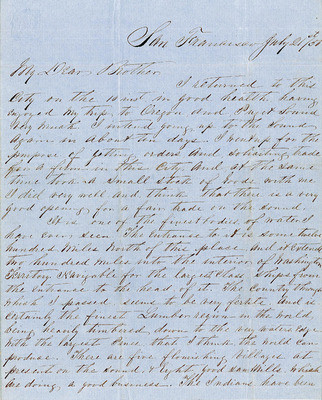 San Francisco July 21st
My Dear Brother
I returned to this
City on the inst in good health, having
enjoyed my trip to Oregon and Puget Sound
very much. I intend going up to the Sound
again in about ten days. I went for the
purpose of getting orders and soliciting trade
for a firm in this City and at the same
time took a small stock of goods with me
I did very well and think that there is a very
good opening for a fair trade on the sound.
It is one of the finest bodies of water I
have ever seen The entrance to it is some
hundred miles North of this place and it extends
two hundred miles into the interior of Washington
Territory Navigable for the largest class ships from
the entrance to the head of it. The Country through
which I passed seems to be very fertile and is
certainly the finest Lumber region in the world,
being heavily timbered down to the very waters edge
with the largest Pines that I think the world can
produce. There are five flourishing villages at
present on the sound & eight good saw mills which
are doing a good business. The Indians have been